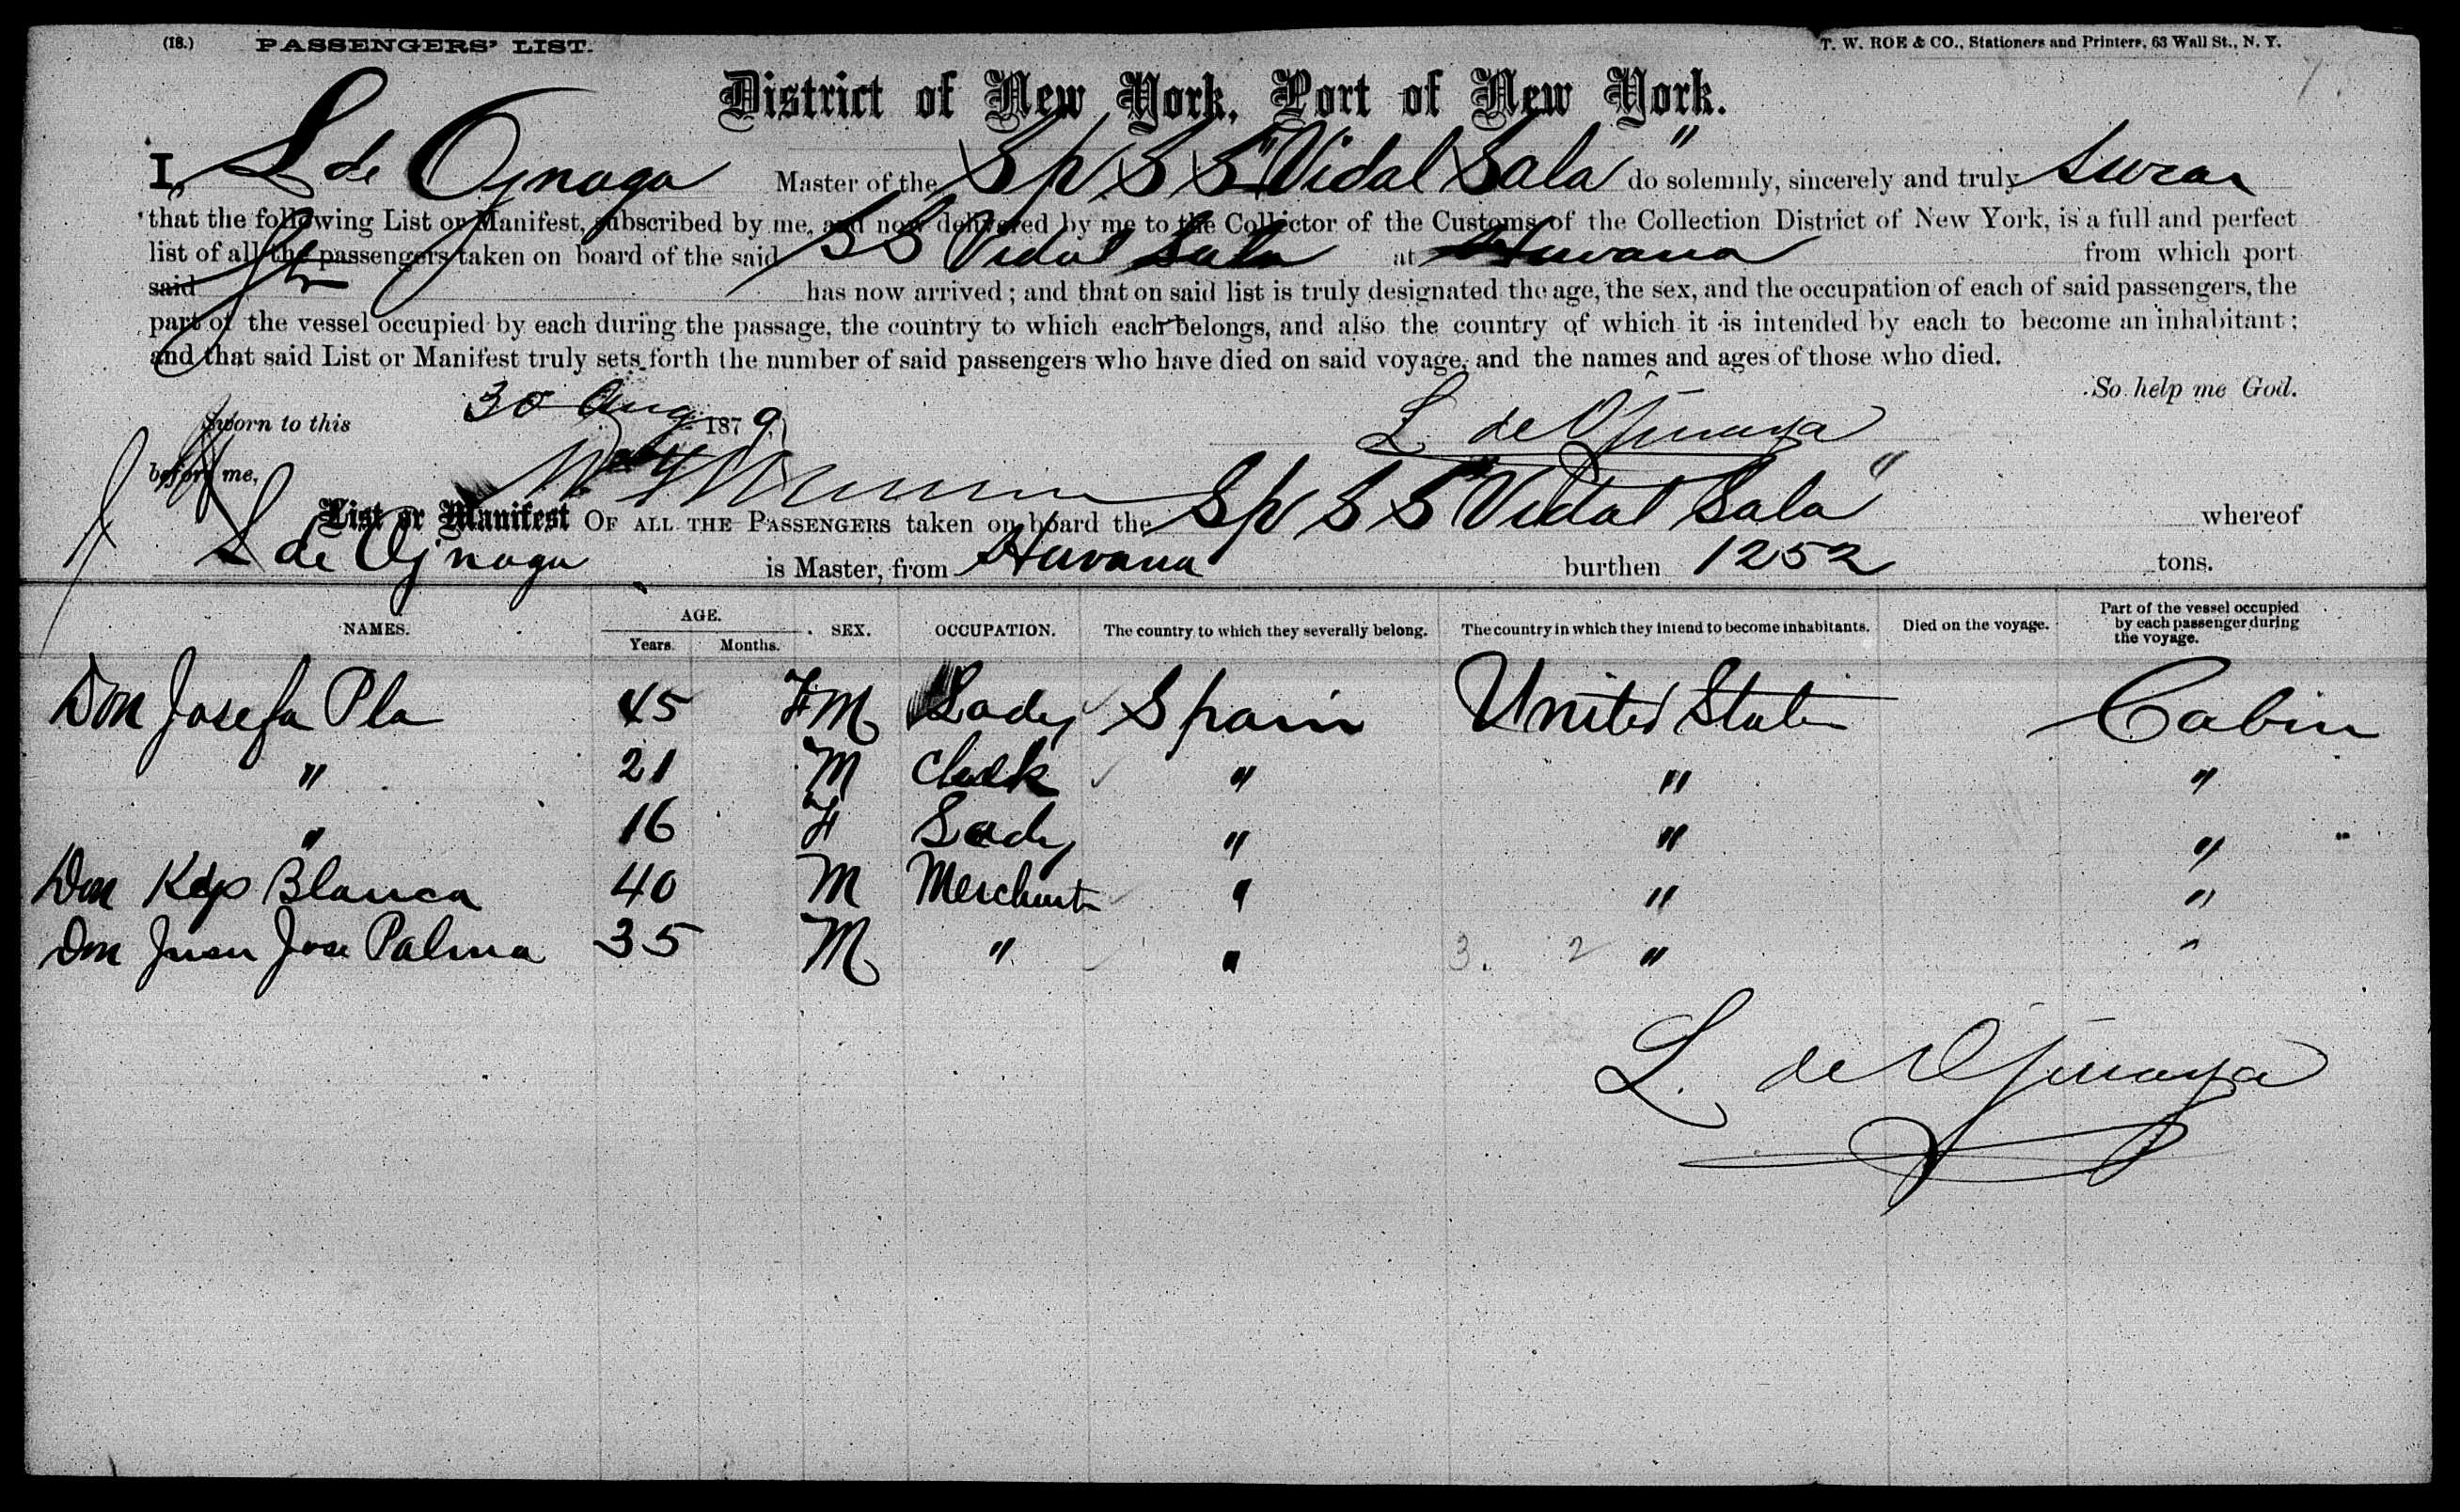 (18.) PASSENGERS' LIST. T. W. ROE & CO., Stationers and Printers, 63 Wall St., N. Y.
District of New York, Port of New York.
I, L de Ojnaga Master of the Sp S S "Vidal Sala" do solemnly, sincerely and truly swear
that the following List or Manifest, subscribed by me, and now delivered by me to the Collector of the Customs of the Collection District of New York, is a full and perfect
list of all the passengers taken on board of the said S S Vidal Sala at Havana from which port
said has now arrived; and that on said list is truly designated the age, the sex, and the occupation of each of said passengers, the
part of the vessel occupied by each during the passage, the country to which each belongs, and also the country of which it is intended by each to become an inhabitant;
and that said List or Manifest truly sets forth the number of said passengers who have died on said voyage, and the names and ages of those who died.
So help me God.
Sworn to this 30 Aug 1879, L de Ojinaga
before me,
List or Manifest OF ALL THE PASSENGERS taken on board the Sp S S "Vidal Sala" whereof
L de Ojnaga is Master, from Havana burthen 1252 tons.
NAMES. AGE. Years. Months. SEX. OCCUPATION. The country to which they severally belong. The country in which they intend to become inhabitants. Died on the voyage. Part of the vessel occupied by each passenger during the voyage.
Don Josefa Pla 45 F M Lady Spain United States Cabin
" 21 M Clerk " " "
" 16 F Lady " " "
Don Blanca 40 M Merchant " " "
Don Juan Jose Palma 35 M " " 3. 2 " "
L. de Ojinaga